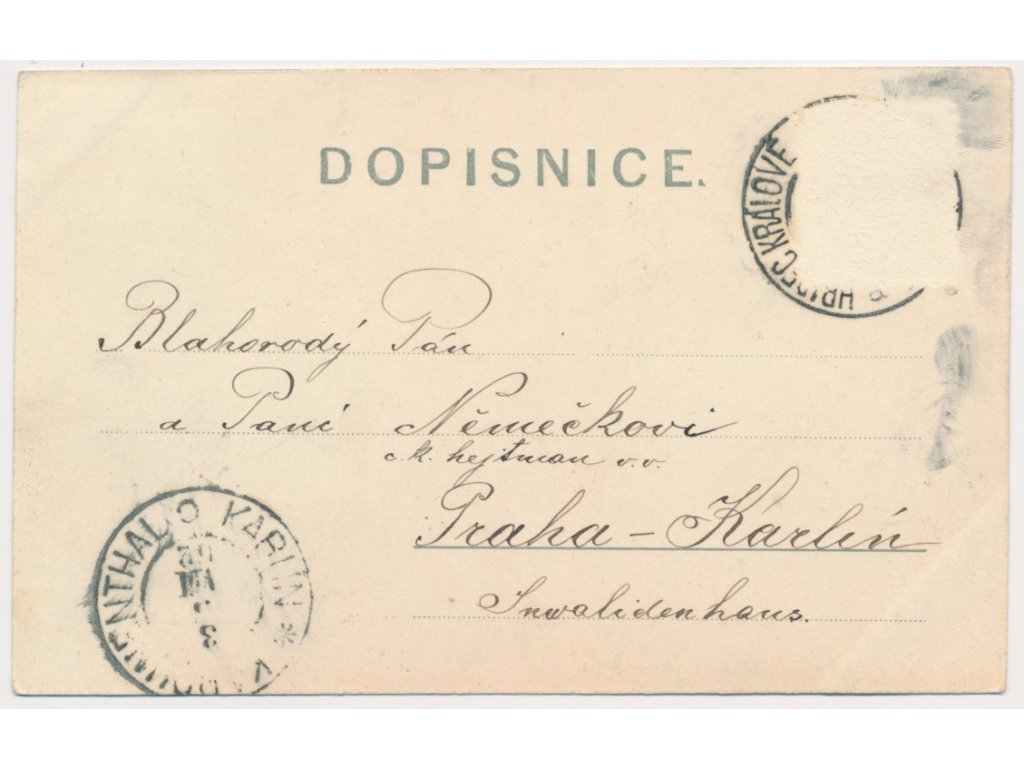 DOPISNICE.
HRADEC KRÁLOVÉ
Blahorodý Pán
a Paní Němečkovi
c.k. hejtman v.v.
Praha – Karlín
Inwalidenhaus.
KARLÍN *